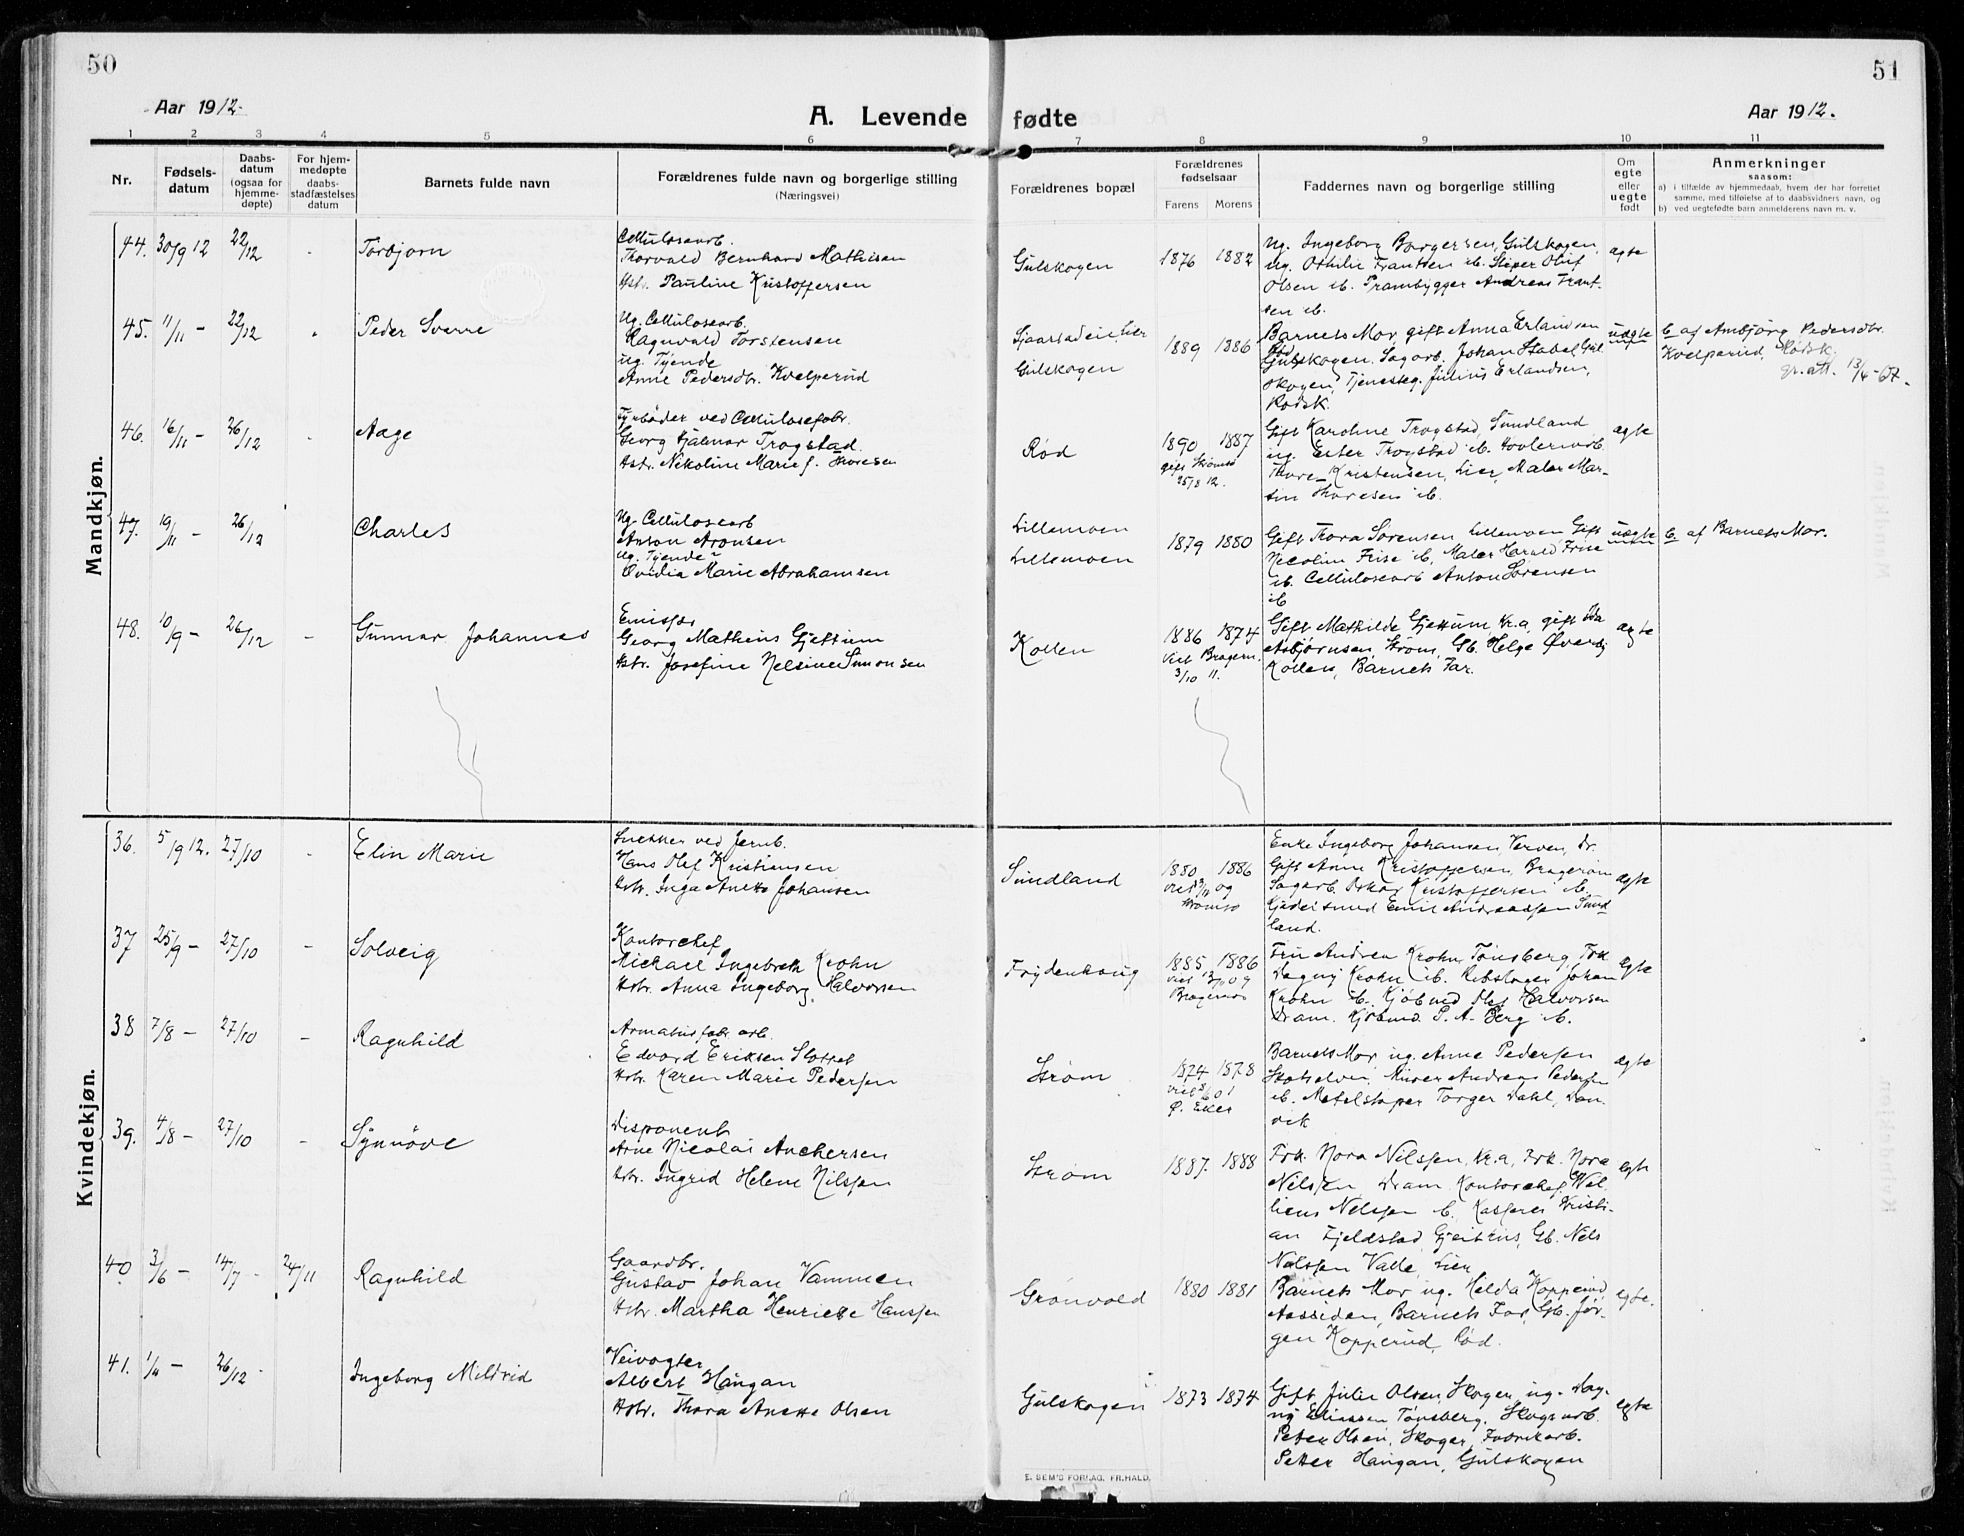 50
51
Aar 1912.
A. Levende fødte
Aar 1912.
1 2 3 4 5 6 7 8 9 10 11
Nr.
Fødsels-
datum
Daabs-
datum
(ogsaa for
hjemme-
døpte)
For hjem-
medøpte
daabs-
stadfæstelses
datum
Barnets fulde navn
Forældrenes fulde navn og borgerlige stilling
(Næringsvei)
Forældrenes bopæl
Forældrenes
fødselsaar
Farens Morens
Faddernes navn og borgerlige stilling
Om
egte
eller
uegte
født
Anmerkninger
saasom:
a) i tilfælde av hjemmedaab, hvem der har forrettet
samme, med tilføielse af to daabsvidners navn, og
b) ved uegtefødte barn anmelderens navn m. v.
Mandkjøn.
44. 30/9 12 22/12 - Torbjorn
Cellulosearb.
Thorvald Bernhard Mathisen
Hstr. Pauline Kristoffersen
Gulskogen
1876 1882
Ug. Ingeborg Borgersen, Gulskogen,
Ug. Othilie Frantsen ib.
Olsen ib. Prambygger Andreas Frant-
sen ib.
ægte
45. 11/11 - 22/12 Peder Sverre
Ug. Cellulosearb.
Ragnvald Torstensen
ug. Tjende
Anne Pedersdtr. Kvelprud
Gulskogen
1889 1886
Barnets Mor, gift Anna Erlandsen
Gulskogen, Sagarb. Johan Stabel, Gul
skogen, Tjenesteg. Julius Erlandsen,
Rødsk.
uægte
b af Ambjørg Pedersdtr.
Kvelprud, Rødsk.
13/6-67.
46. 16/11 - 26/12 Aage
Fyrbøder ved Cellulosefabr.
Georg Hjalmar Trogstad
Hstr. Nikoline Marie J. Thoresen
Rød
1890 1887
gift Strømsø
25/8 12.
Gift Karoline Trogstad, Sundland
ug. Ester Trogstad ib.
Thore Kristensen, Lier, Maler Mar-
tin Thoresen ib.
ægte
47. 19/11 - 26/12 Charles
Ug. Cellulosearb
Anton Aronsen
Ug. Tjende
Ovidia Marie Abrahamsen
Lillemoen
Lillemoen
1879 1880
Gift Thora Sørensen, Lillemoen, Gift
Nicoline Frise ib, Maler Harald Frise
ib. Cellulosearb Anton Sørensen
ib
uægte
b af Barnets Mor.
48. 10/9 - 26/12 - Gunnar Johannes
Georg Mathius Gjettum
Hstr. Josefine Nelsine Simonsen
Kollen
1886 1874
Viet Bragern.
3/10 11.
Gift Mathilde Gjettum Kr.a, gift Ida
Asbjørnsen Strøm, Gb. Helge Øverby
Kollen, Barnets Far.
ægte
Kvindekjøn.
36. 5/9 12. 27/10 - Elin Marie
Snekker ved Jernb.
Hans Olaf Kristiansen
Hstr. Inga Anette Johansen
Sundland
1880 1886
Strømsø
Enke Ingeborg Johansen, Verven, Dr.
Gift Anne Kristoffersen, Bragerøen
Sagarb. Oskar Kristoffersen ib.
Emil Andreassen Sund-
land.
ægte
37 25/9 - 27/10 - Solveig
Kontorchef
Michael Ingebreth Krohn
Hstr. Anna Ingeborg Halvorsen
Frydenhaug
1885 1886
Bragernes
Fru Andrea Krohn, Tønsberg, Frk
Dagny Krohn ib. Rebslager Johan
Krohn ib. Kjøbmd Olaf Halvorsen
Dram. Kjøbmd. P. A. Berg ib.
Egte
38 7/8 - 27/10 - Ragnhild
Armaturfabr. arb.
Edvard Eriksen
Hstr. Karen Marie Pedersen
Strøm
1874 1878
Ø. Eker
Barnets Mor, ug. Anne Pedersen
Skotselven, Murer Andreas Pedersen
ib. Torger Dahl, Dan-
vik
ægte
39. 4/8 - 27/10 - Synnöve
Disponent
Arne Nicolai Anchersen
Hstr. Ingrid Helene Nilssen
Strøm
1887. 1888
Frk. Nora Nilssen, Kr.a, Frk. Nora
Nilssen Dram Kontorchef Wil
liens Nilssen ib. Kasserer Kristi-
an Fjeldstad, Gjeithus, Gb. Nils
Nilssen Valle, Lier
egte
40. 3/6 - 14/7 - 24/11 Ragnhild
Gaardbr.
Gustav Johan Vammen
Hstr. Martha Henriette Hanssen
Grønvold
1880 1881
Barnets Mor, ug. Helda Kopperud
Aassiden, Barnets Far, Gb. Jør-
gen Kopperud, Rød.
egte.
41. 1/4 - 26/12 - Ingeborg Mildrid
Veivogter
Albert Haugan
Hstr. Thora Anette Olsen
Gulskogen
1873 1874
Gift Julie Olsen, Skoger, ug. Dag-
ny Eliassen Tønsberg, Skogsarb.
Peter Olsen, Skoger, Fabrikarb.
Petter Haugan, Gulskogen
egte
E. SEM'S FORLAG, FR.HALD.